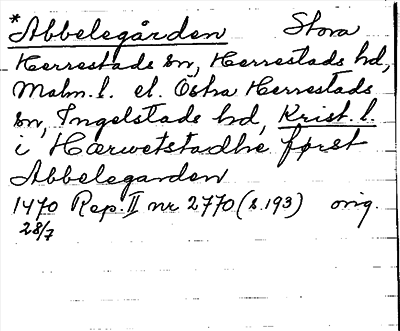 *Abbelegården Stora
Herrestads sn, Herrestads hd,
Malm.l. el. Östra Herrestads
sn, Ingelstads hd, Krist.l.
i Hærwetstadhe først
Abbelegarden
1470 Rep. II nr 2770 (s.193) orig.
28/7